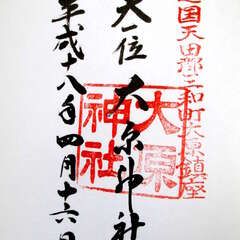 国天田郡三和町大原鎮座
天一位 大原神社
大原神社
平成十八年四月十六日